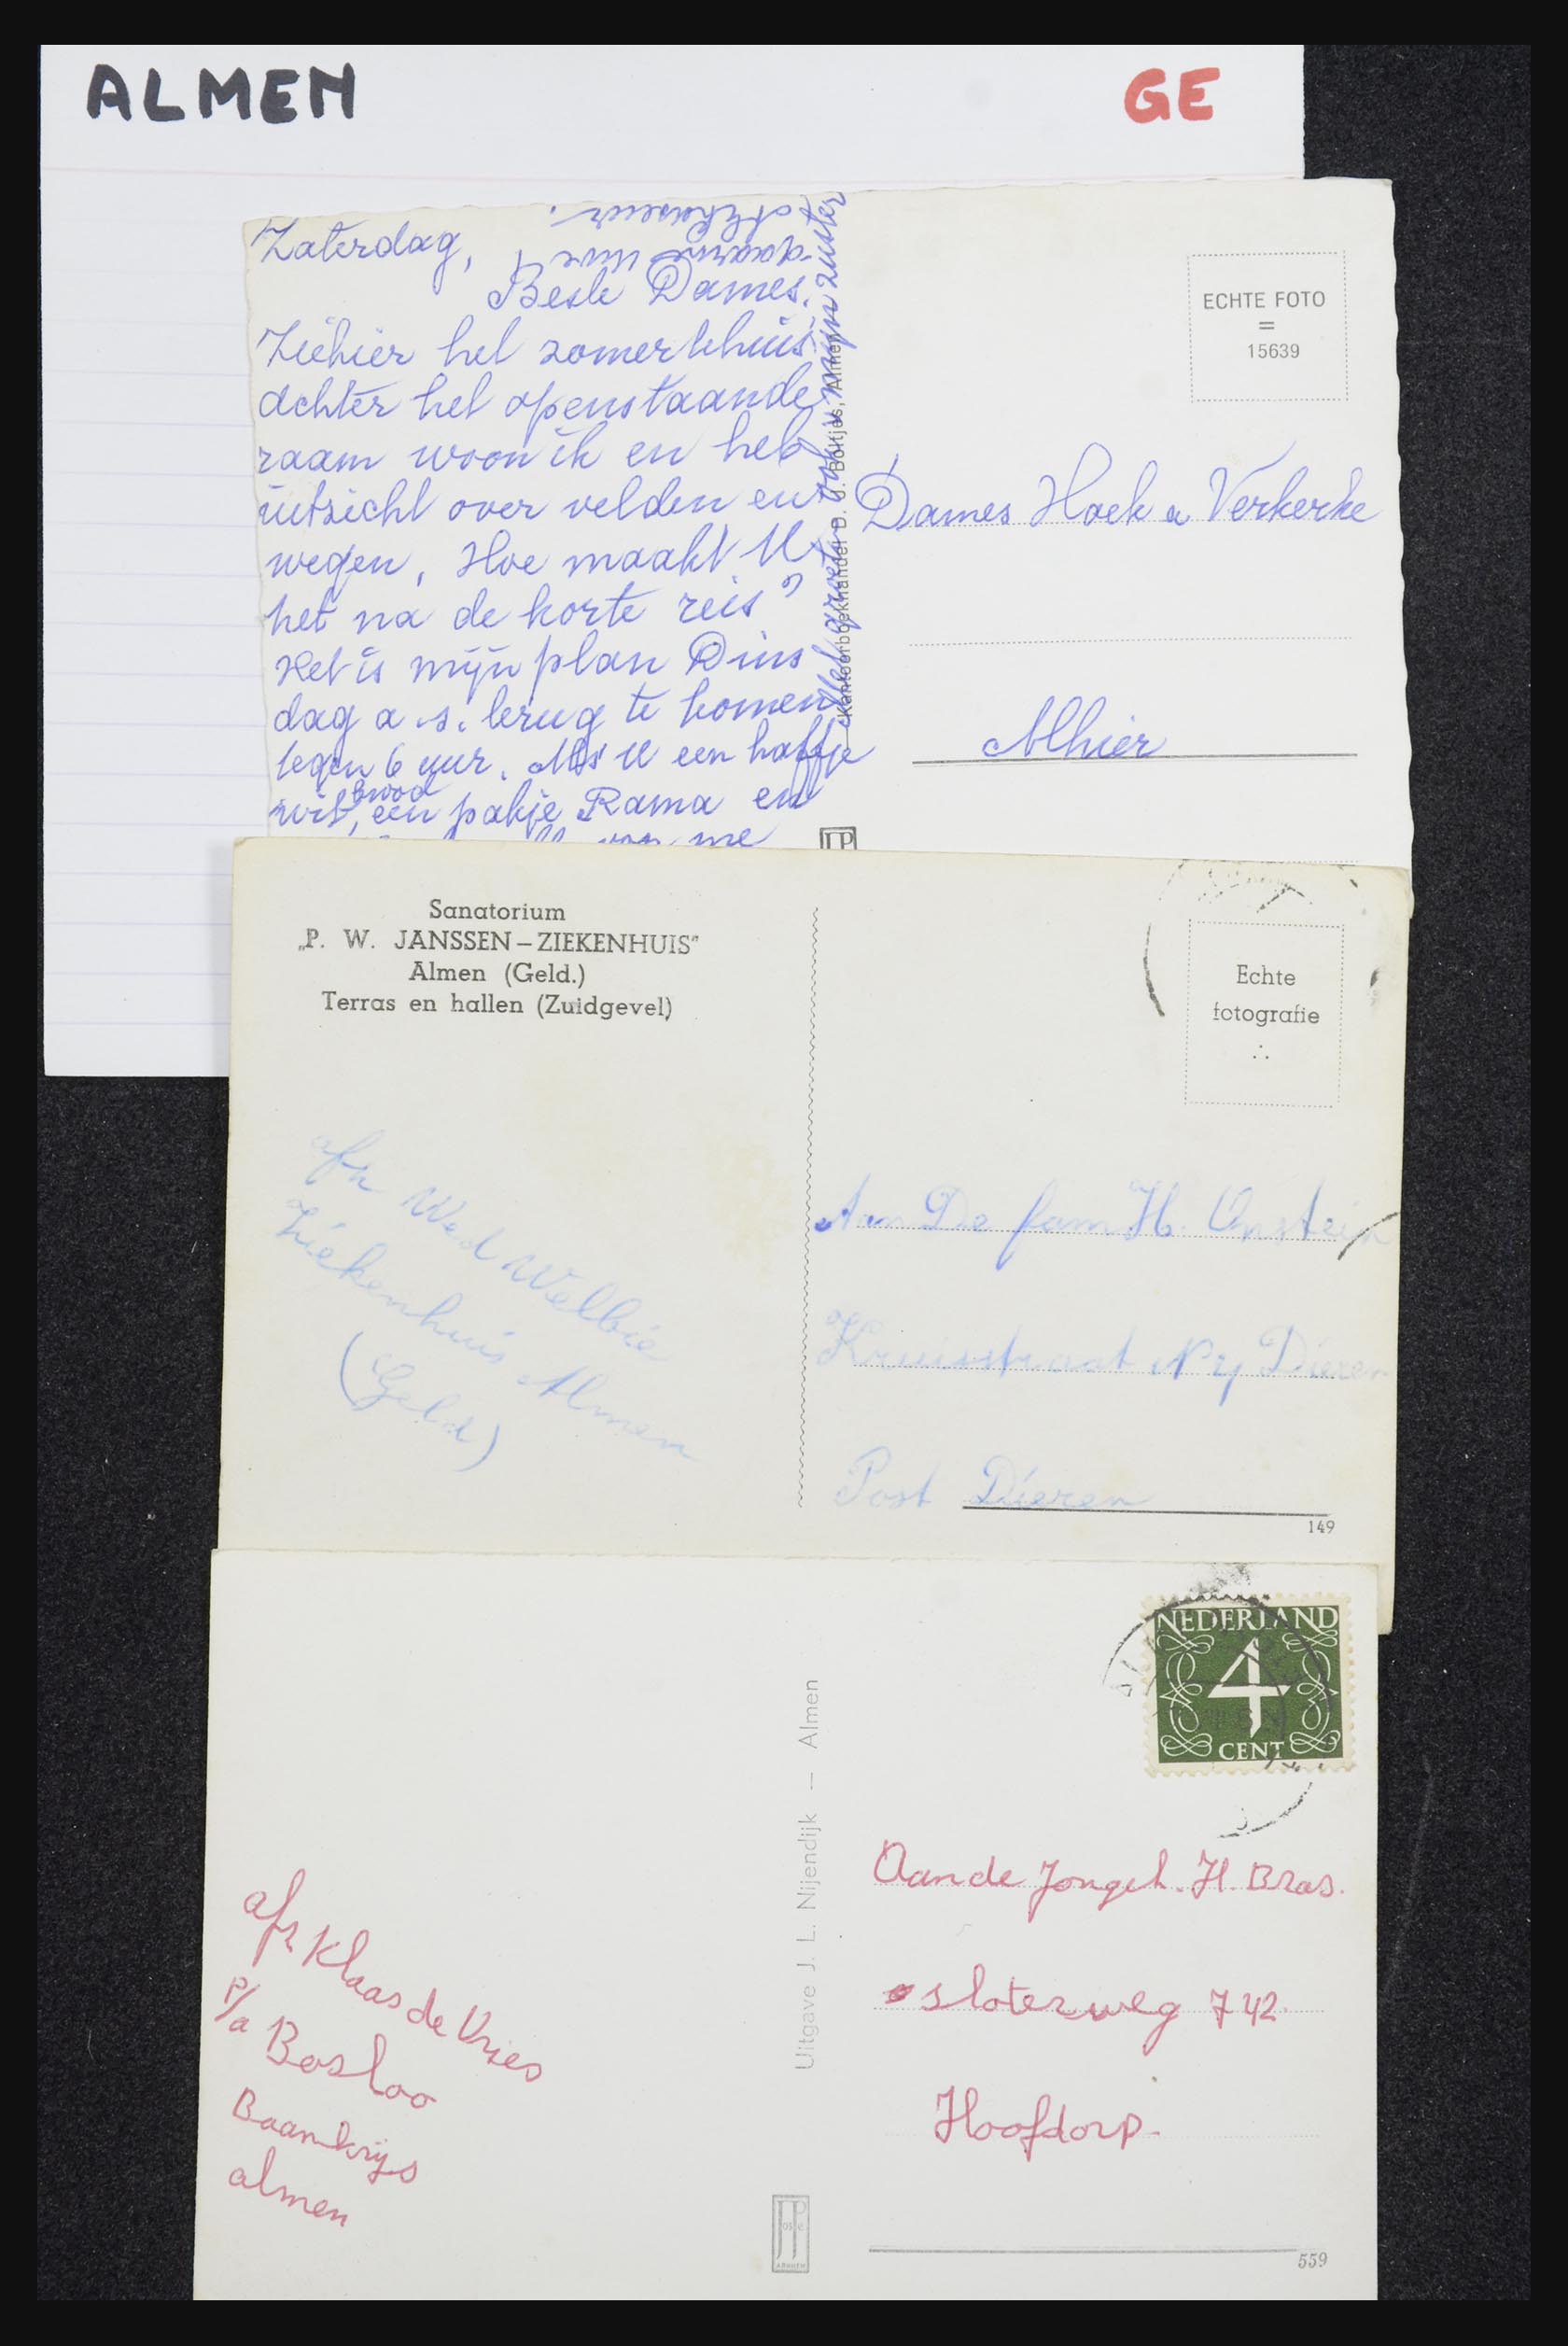 ALMEN
GE
Zaterdag,
Beste Dames.
Ziehier het zomerthuis
Achter het openstaande
raam woon ik en heb
uitzicht over velden en
wegen. Hoe maakt U
het na de korte reis?
Het is mijn plan Dins
dag a.s. terug te komen
tegen 6 uur. Als U een halfje
wit brood, een pakje Rama en
van me
mijn zuster
Kantoorboekhandel D. J. Boltjes, Almen
ECHTE FOTO
=
15639
Dames Hoek en Verkerke
Alhier
Sanatorium
„P. W. JANSSEN–ZIEKENHUIS"
Almen (Geld.)
Terras en hallen (Zuidgevel)
Echte
fotografie
afz Wed Welbie
Ziekenhuis Almen
(Geld)
Aan De fam H. Onstein
Kruisstraat N 4 Dieren
Post Dieren
149
NEDERLAND
4
CENT
Uitgave J. L. Nijendijk — Almen
Aan de Jongeh. H. Bras.
sloterweg 742
Hoofdorp.
afz Klaas de Vries
p/a Bosloo
Baankrijs
almen
JP
ARNHEM
559